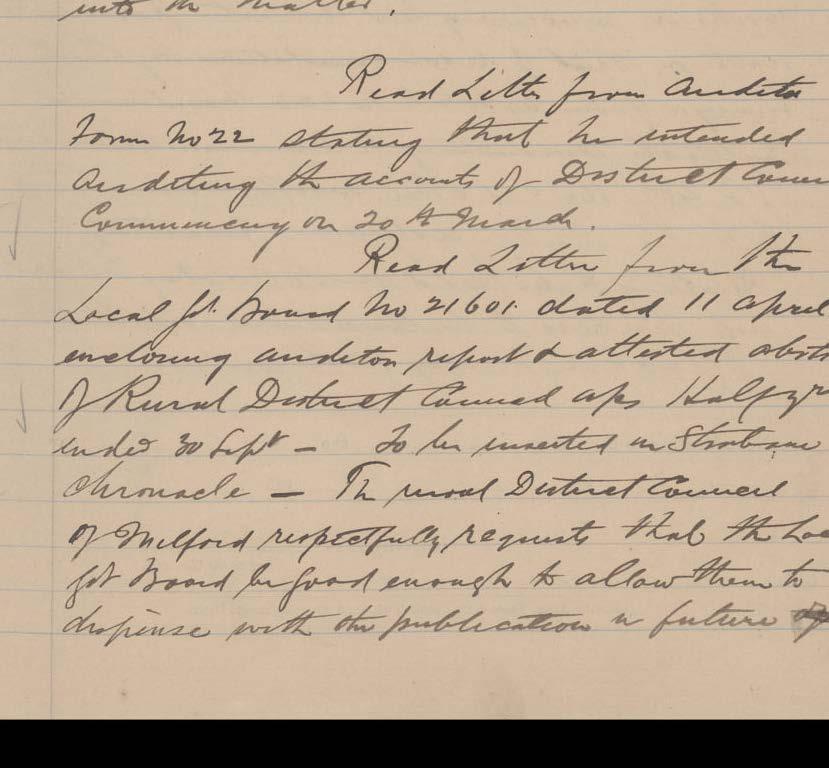 into the matter.
Read Letter from Audito
Form No 22 stating that he intended
Auditing the accounts of District Coun
Commencing on 20th March.
Read Letter from the
Local Gt. Board No 21601. dated 11 April
enclosing auditors report & attested abst
of Rural District Council a/cs Half yr
ended 30 Sept – To be inserted in Strabane
Chronacle – The rural District Council
of Milford respectfully requests that the Loc
Gt Board be good enough to allow them to
dispense with the publication in future